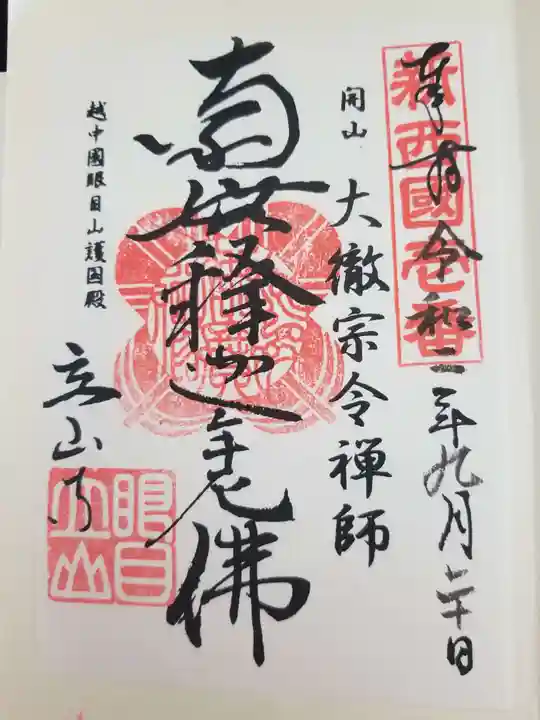 新西國壱番
奉拝 令和二年九月二十日
開山 大徹宗令禅師
南無釋迦牟尼佛
越中國眼目山護国殿
立山寺
眼目
立山